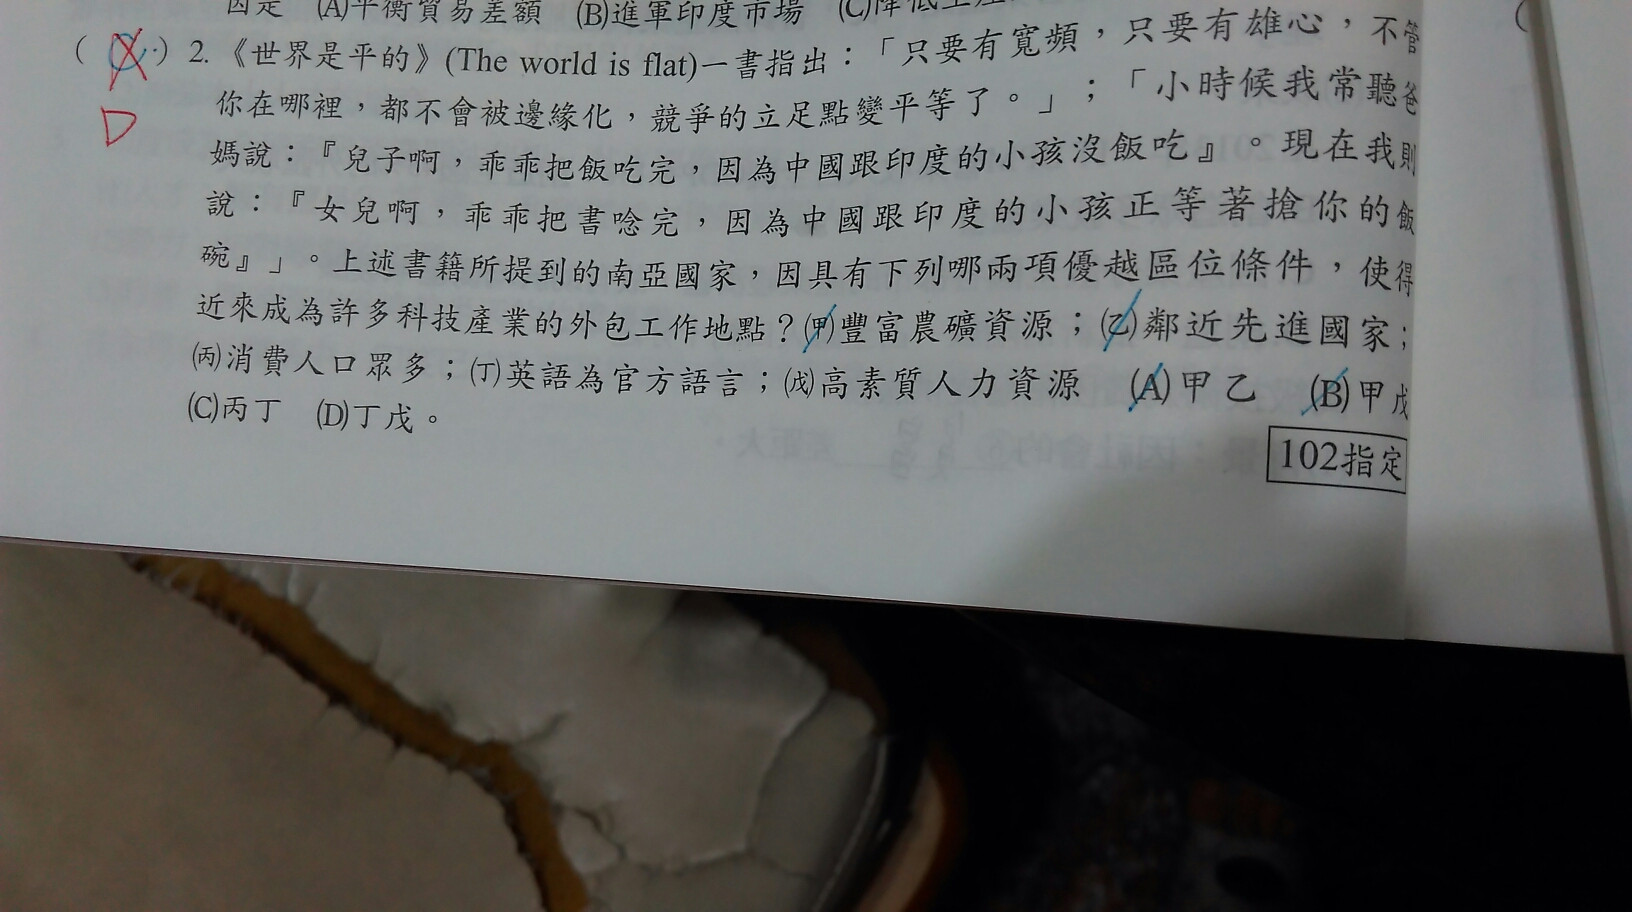 因是 (A)平衡貿易差額 (B)進軍印度市場 (C)降低
( C ) 2. 《世界是平的》(The world is flat)一書指出：「只要有寬頻，只要有雄心，不管
D
你在哪裡，都不會被邊緣化，競爭的立足點變平等了。」；「小時候我常聽爸
媽說：『兒子啊，乖乖把飯吃完，因為中國跟印度的小孩沒飯吃』。現在我則
說：『女兒啊，乖乖把書唸完，因為中國跟印度的小孩正等著搶你的飯
碗』」。上述書籍所提到的南亞國家，因具有下列哪兩項優越區位條件，使得
近來成為許多科技產業的外包工作地點？(甲)豐富農礦資源；(乙)鄰近先進國家；
(丙)消費人口眾多；(丁)英語為官方語言；(戊)高素質人力資源 (A)甲乙 (B)甲戊
(C)丙丁 (D)丁戊。
102指定